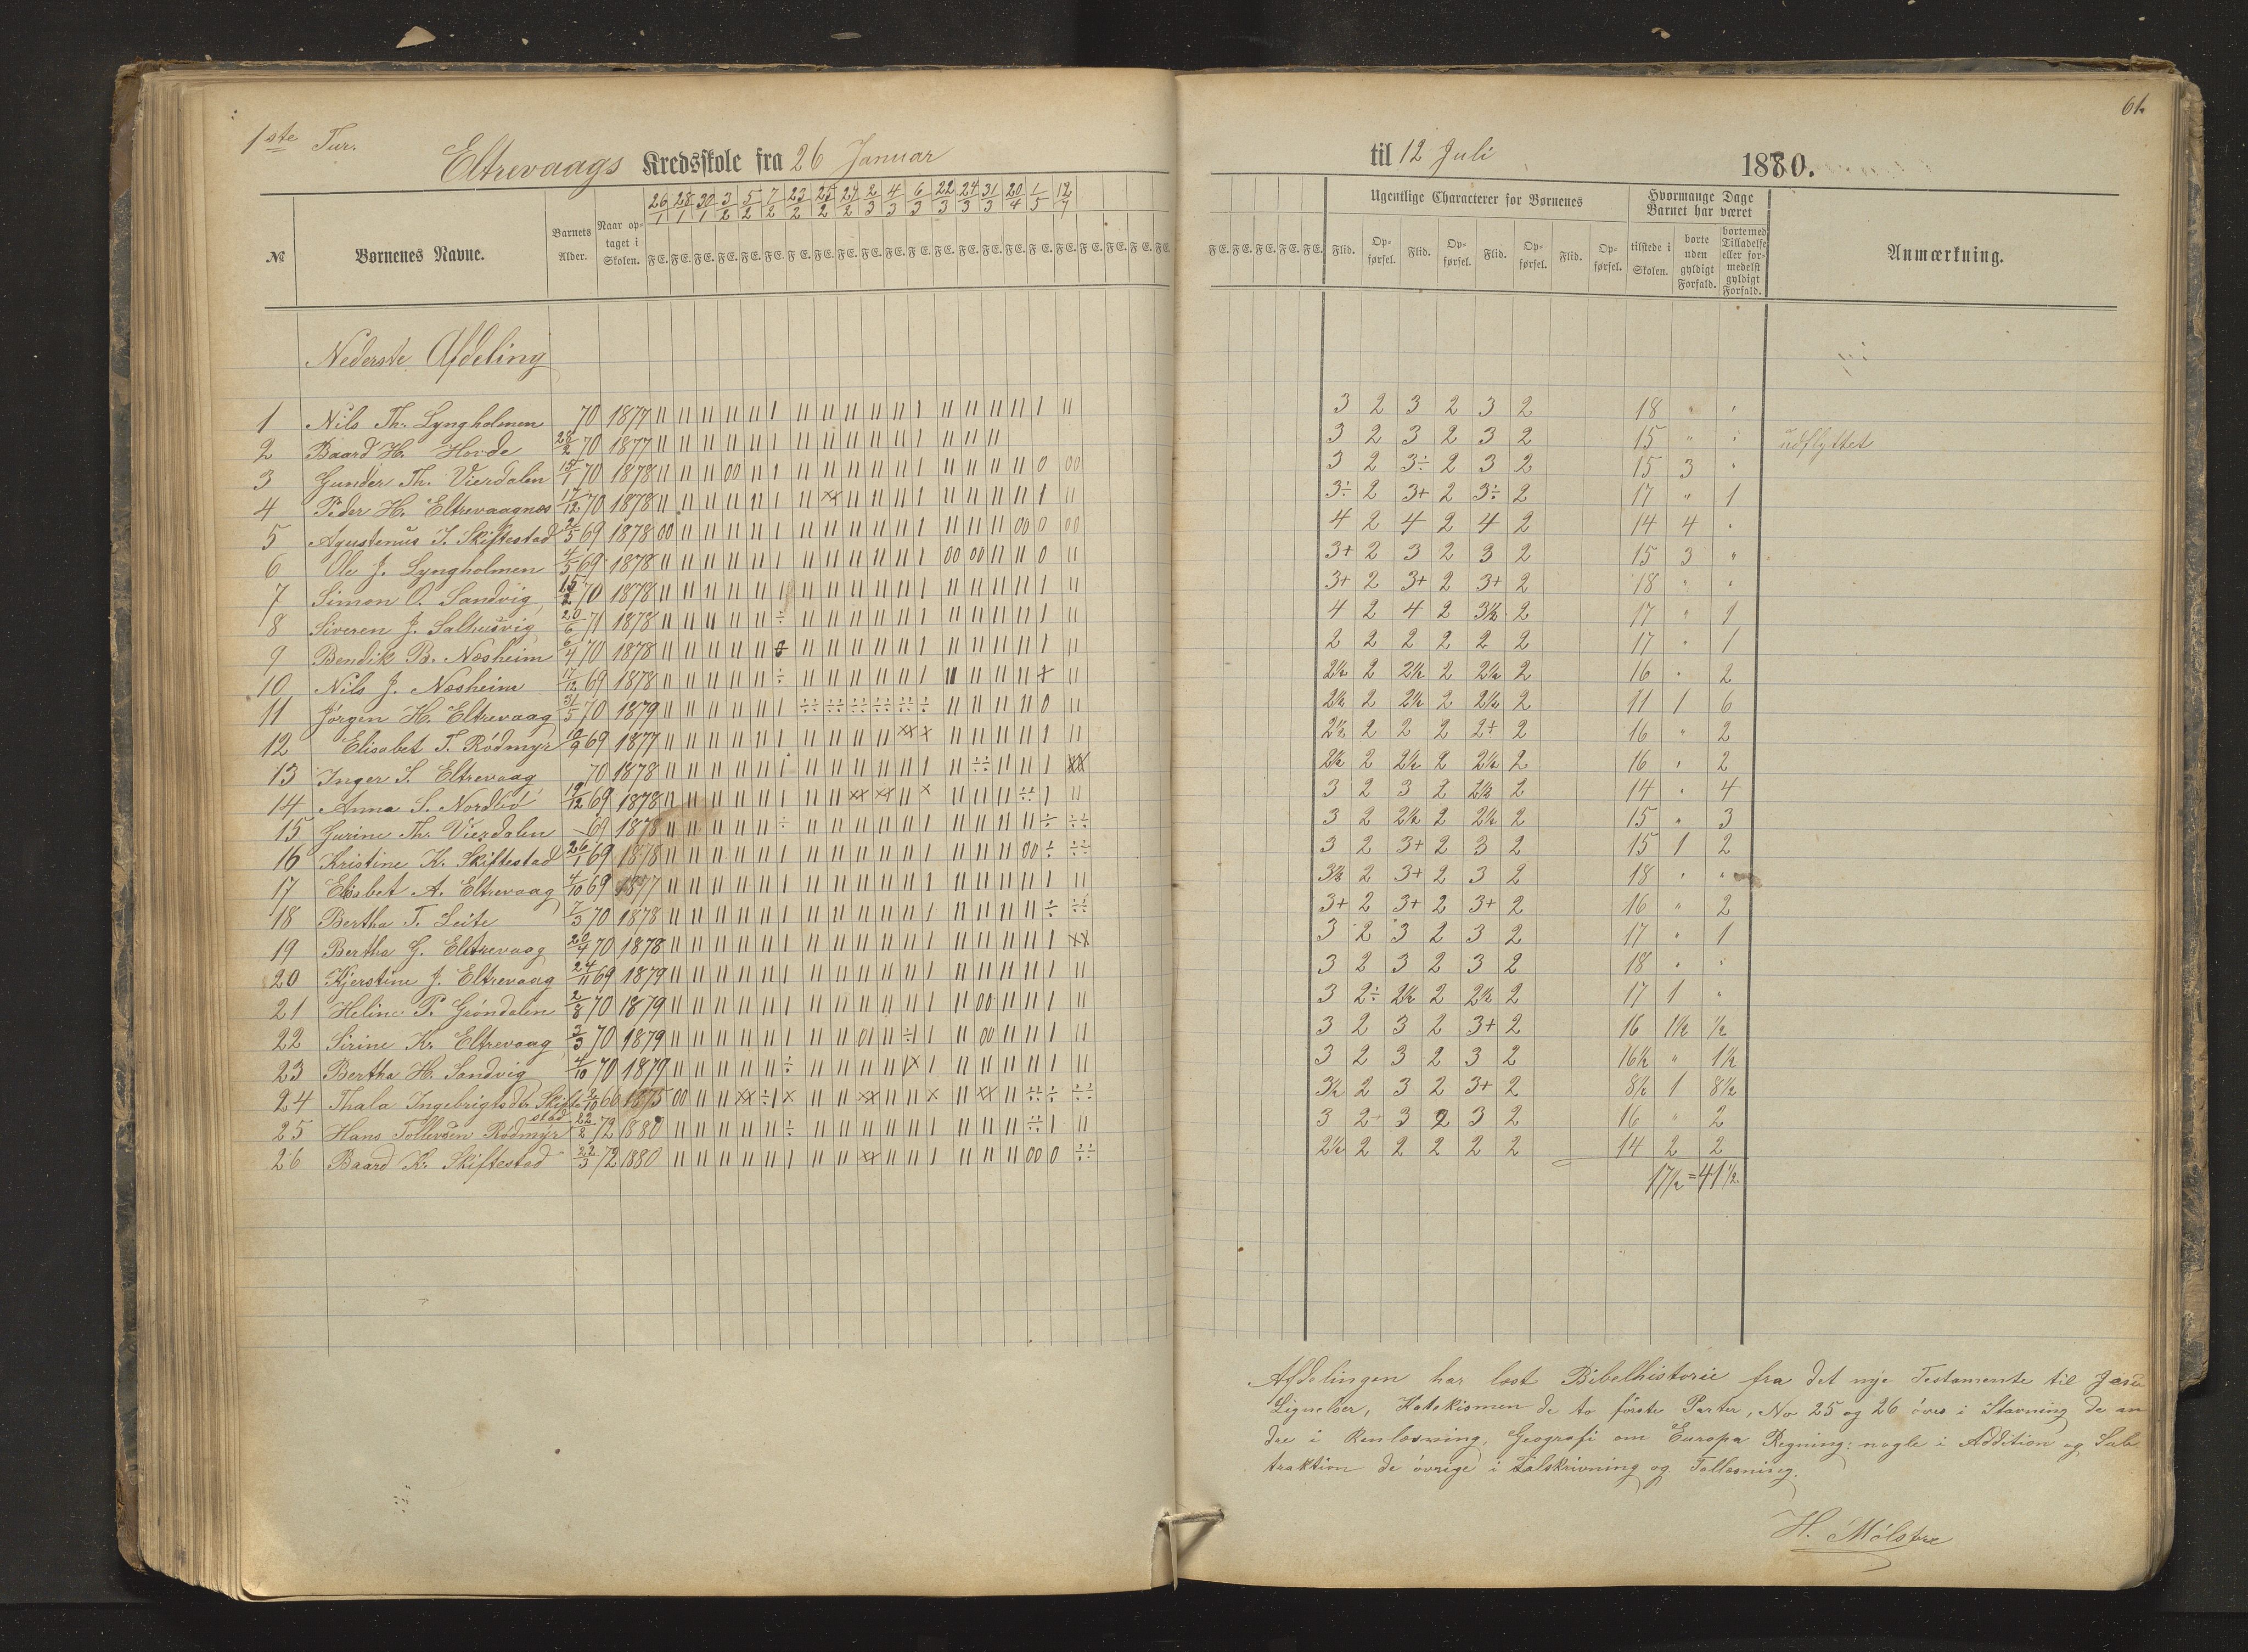 61.
1ste Tur.
Eltrevaags Kredsskole fra 26 Januar til 12 Juli 1880.
№ Børnenes Navne. Barnets Alder. Naar optaget i Skolen. 26/1 28/1 30/1 3/2 5/2 7/2 23/2 25/2 27/2 2/3 4/3 6/3 22/3 24/3 31/3 20/4 1/5 12/7
Ugentlige Characterer for Børnenes Flid. Opførsel. Flid. Opførsel. Flid. Opførsel. Flid. Opførsel.
Hvormange Dage Barnet har været tilstede i Skolen. borte uden gyldigt Forfald. borte med Tilladelse eller formedelst gyldigt Forfald. Anmærkning.
Nederste Afdeling
1 Nils Th. Lyngholmen 70 1877 3 2 3 2 3 2 18 " "
2 Baard H. Hovde 28/2 70 1877 3 2 3 2 3 2 15 " " udflyttet
3 Gunder Th. Vierdalen 15/1 70 1878 3 2 3÷ 2 3 2 15 3 "
4 Peder H. Eltrevaagnæs 17/12 70 1878 3÷ 2 3+ 2 3÷ 2 17 " 1
5 Agustenus I. Skiftestad 24/5 69 1878 4 2 4 2 4 2 14 4 "
6 Ole J. Lyngholmen 4/5 69 1878 3+ 2 3 2 3 2 15 3 "
7 Simon O. Sandvig 15/2 70 1878 3+ 2 3+ 2 3+ 2 18 " "
8 Siveren J. Salhusvig 20/6 71 1878 4 2 4 2 3½ 2 17 " 1
9 Bendik B. Næsheim 6/4 70 1878 2 2 2 2 2 2 17 " 1
10 Nils J. Næsheim 17/12 69 1878 2½ 2 2½ 2 2½ 2 16 " 2
11 Jørgen H. Eltrevaag 31/5 70 1879 2½ 2 2½ 2 2½ 2 11 1 6
12 Elisabet T. Rødmyr 10/9 69 1877 2½ 2 2 2 2÷ 2 16 " 2
13 Inger S. Eltrevaag 70 1878 2½ 2 2½ 2 2½ 2 16 " 2
14 Anna S. Nordbø 19/12 69 1878 3 2 3 2 2½ 2 14 " 4
15 Gurine Th. Vierdalen 69 1878 3 2 2½ 2 2½ 2 15 " 3
16 Kristine K. Skiftestad 26/1 69 1878 3 2 3+ 2 3 2 15 1 2
17 Elisabet A. Eltrevaag 4/10 69 1877 3½ 2 3+ 2 3 2 18 " "
18 Bertha T. Leite 7/3 70 1878 3+ 2 3+ 2 3+ 2 16 " 2
19 Bertha G. Eltrevaag 20/4 70 1878 3 2 3 2 3 2 17 " 1
20 Kjerstine J. Eltrevaag 24/11 69 1879 3 2 3 2 3 2 18 " "
21 Heline P. Grøndalen 2/8 70 1879 3 2÷ 2½ 2 2½ 2 17 1 "
22 Sirine K. Eltrevaag 2/3 70 1879 3 2 3 2 3+ 2 16 1½ ½
23 Bertha H. Sandvig 4/10 70 1879 3 2 3 2 3 2 16½ " 1½
24 Thala Ingebrigtsdtr Skiftestad 2/10 66 1875 3½ 2 3 2 3+ 2 8½ 1 8½
25 Hans Tollevsen Rødmyr 22/2 72 1880 3 2 3 2 3 2 16 " 2
26 Baard K. Skiftestad 22/3 72 1880 2½ 2 2 2 2 2 14 2 2
17½ = 41½.
Afdelingen har læst Bibelhistorie fra det nye Testamente til Jesu
Lignelser, Katekismen de to første Parter, No 25 og 26 øves i Stavning de an
dre i Renlæsning, Geografi om Europa Regning: nogle i Addition og Sub
traktion de øvrige i Talskrivning og Tallæsning.
H. Mølstre